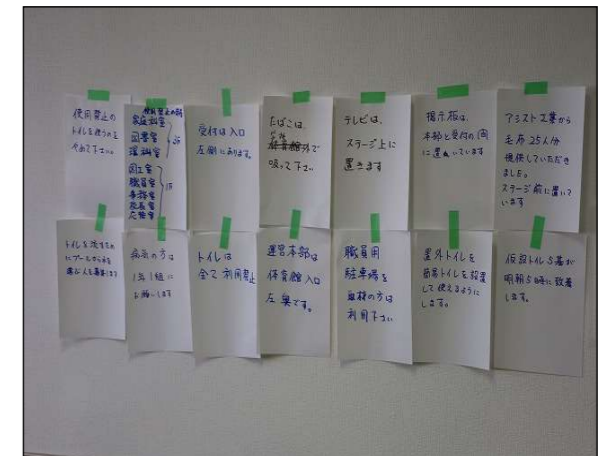 使用禁止の
トイレを使うのを
やめて下さい。
使用禁止の部
家庭科室
図書室
理科室
2F
図工室
職員室
事務室
校長室
応接室
1F
受付は入口
左側にあります。
たばこは、
外で
吸って下さい
テレビは、
ステージ上に
置きます
掲示板は、
本部と受付の間
に置いています
アシスト工業から
毛布25人分
提供していただき
ました。
ステージ前に置いて
います
トイレを流すため
にプールから水を
運ぶ人を募集します
病気の方は
1当1組に
お願いします
トイレは
全て利用禁止
運営本部は
体育館入口
左奥です。
職員用
駐車場を
取材の方は
利用下さい
屋外トイレを
簡易トイレを設置
して使えるように
します。
仮設トイレ5基が
明朝5時に到着
します。